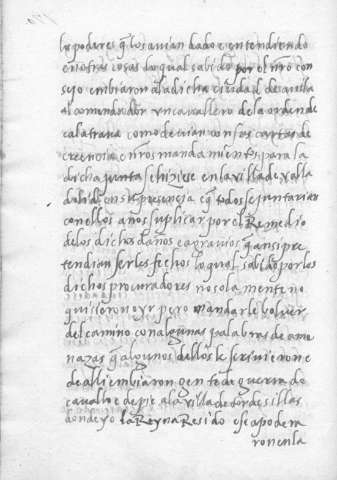 los poderes q̃ los avian dado e entendiendo
en otras cosas lo qual sabido por el nr̃o con
sejo embiaron a la dicha ciudad de avila
al comendador un cavallero de la orden de
calatrava como devian con sus cartas de
creencia e nr̃os mandamientos para la
dicha junta se hiziese en la villa de valla
dolid en su presencia q̃ todos se juntarian
con ellos a nos suplicar por el Remedio
de los dichos daños e agravios q̃ ansi pre
tendian serles fechos lo qual sabido por los
dichos procuradores no sola mente no
quisieron oyr pero mandarle bolver
del camino con algunas palabras de ame
nazas q̃ algunos dellos le scrivieron e
de alli embiaron gente de guerra de
cavallo e de pie a la villa de tordesillas
donde yo la Reyna Resido e se apodera
ron en la